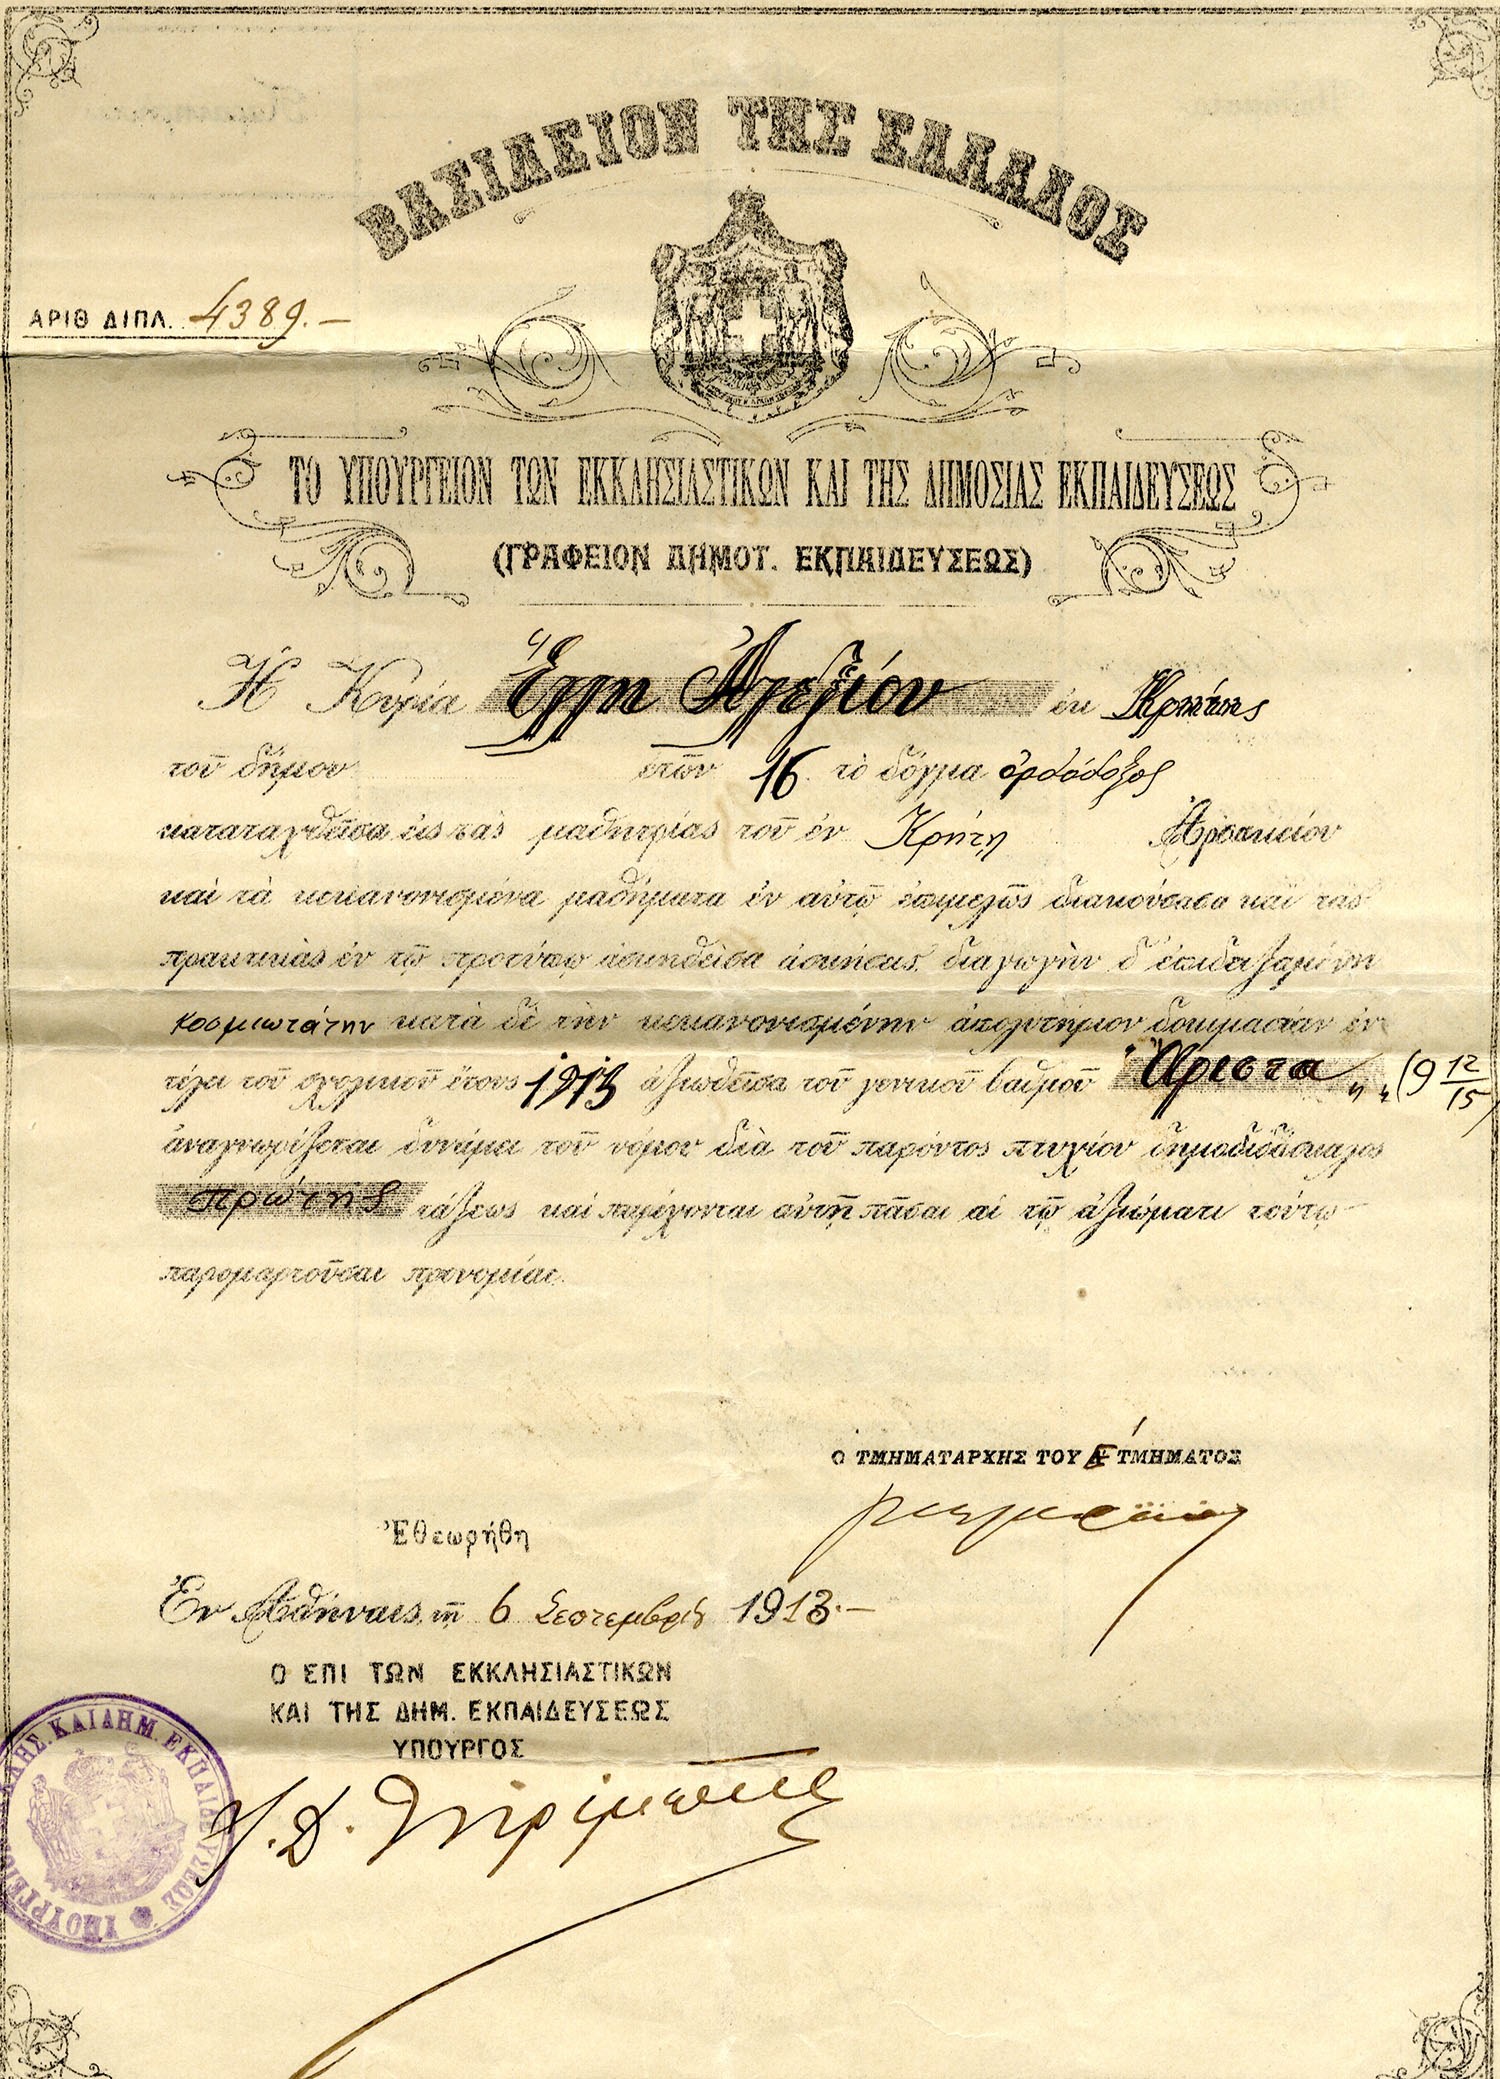 ΒΑΣΙΛΕΙΟΝ ΤΗΣ ΕΛΛΑΔΟΣ
ΑΡΙΘ ΔΙΠΛ. 4389.—
ΤΟ ΥΠΟΥΡΓΕΙΟΝ ΤΩΝ ΕΚΚΛΗΣΙΑΣΤΙΚΩΝ ΚΑΙ ΤΗΣ ΔΗΜΟΣΙΑΣ ΕΚΠΑΙΔΕΥΣΕΩΣ
(ΓΡΑΦΕΙΟΝ ΔΗΜΟΤ. ΕΚΠΑΙΔΕΥΣΕΩΣ)
Ἡ Κυρία Ἕλλη Ἀλεξίου ἐκ Κρήτης
τοῦ δήμου ἐτῶν 16. τὸ δόγμα ὀρθόδοξος
καταταχθεῖσα εἰς τὰς μαθητρίας τοῦ ἐν Κρήτῃ Ἀρσακείου
καὶ τὰ κεκανονισμένα μαθήματα ἐν αὐτῷ ἐπιμελῶς διακούσασα καὶ τὰς
πρακτικὰς ἐν τῷ προτύπῳ ἀσκηθεῖσα ἀσκήσεις, διαγωγὴν δ' ἐπιδειξαμένη
κοσμιωτάτην κατὰ δὲ τὴν κεκανονισμένην ἀπολυτήριον δοκιμασίαν ἐν
τέλει τοῦ σχολικοῦ ἔτους 1913 ἀξιωθεῖσα τοῦ γενικοῦ βαθμοῦ "Ἄριστα" (9 12/15)
ἀναγνωρίζεται δυνάμει τοῦ νόμου διὰ τοῦ παρόντος πτυχίου δημοδιδάσκαλος
πρώτης τάξεως καὶ παρέχονται αὐτῇ πᾶσαι αἱ τῷ ἀξιώματι τούτῳ
παρομαρτοῦσαι προνομίαι.
Ο ΤΜΗΜΑΤΑΡΧΗΣ ΤΟΥ Ε' ΤΜΗΜΑΤΟΣ
Ἐθεωρήθη
Ἐν Ἀθήναις τῇ 6 Σεπτεμβρίου 1913.—
Ο ΕΠΙ ΤΩΝ ΕΚΚΛΗΣΙΑΣΤΙΚΩΝ
ΚΑΙ ΤΗΣ ΔΗΜ. ΕΚΠΑΙΔΕΥΣΕΩΣ
ΥΠΟΥΡΓΟΣ
Ι. Δ. Τσιριμῶκος
ΚΑΙ ΔΗΜ. ΕΚΠΑΙΔΕΥΣΕΩΣ